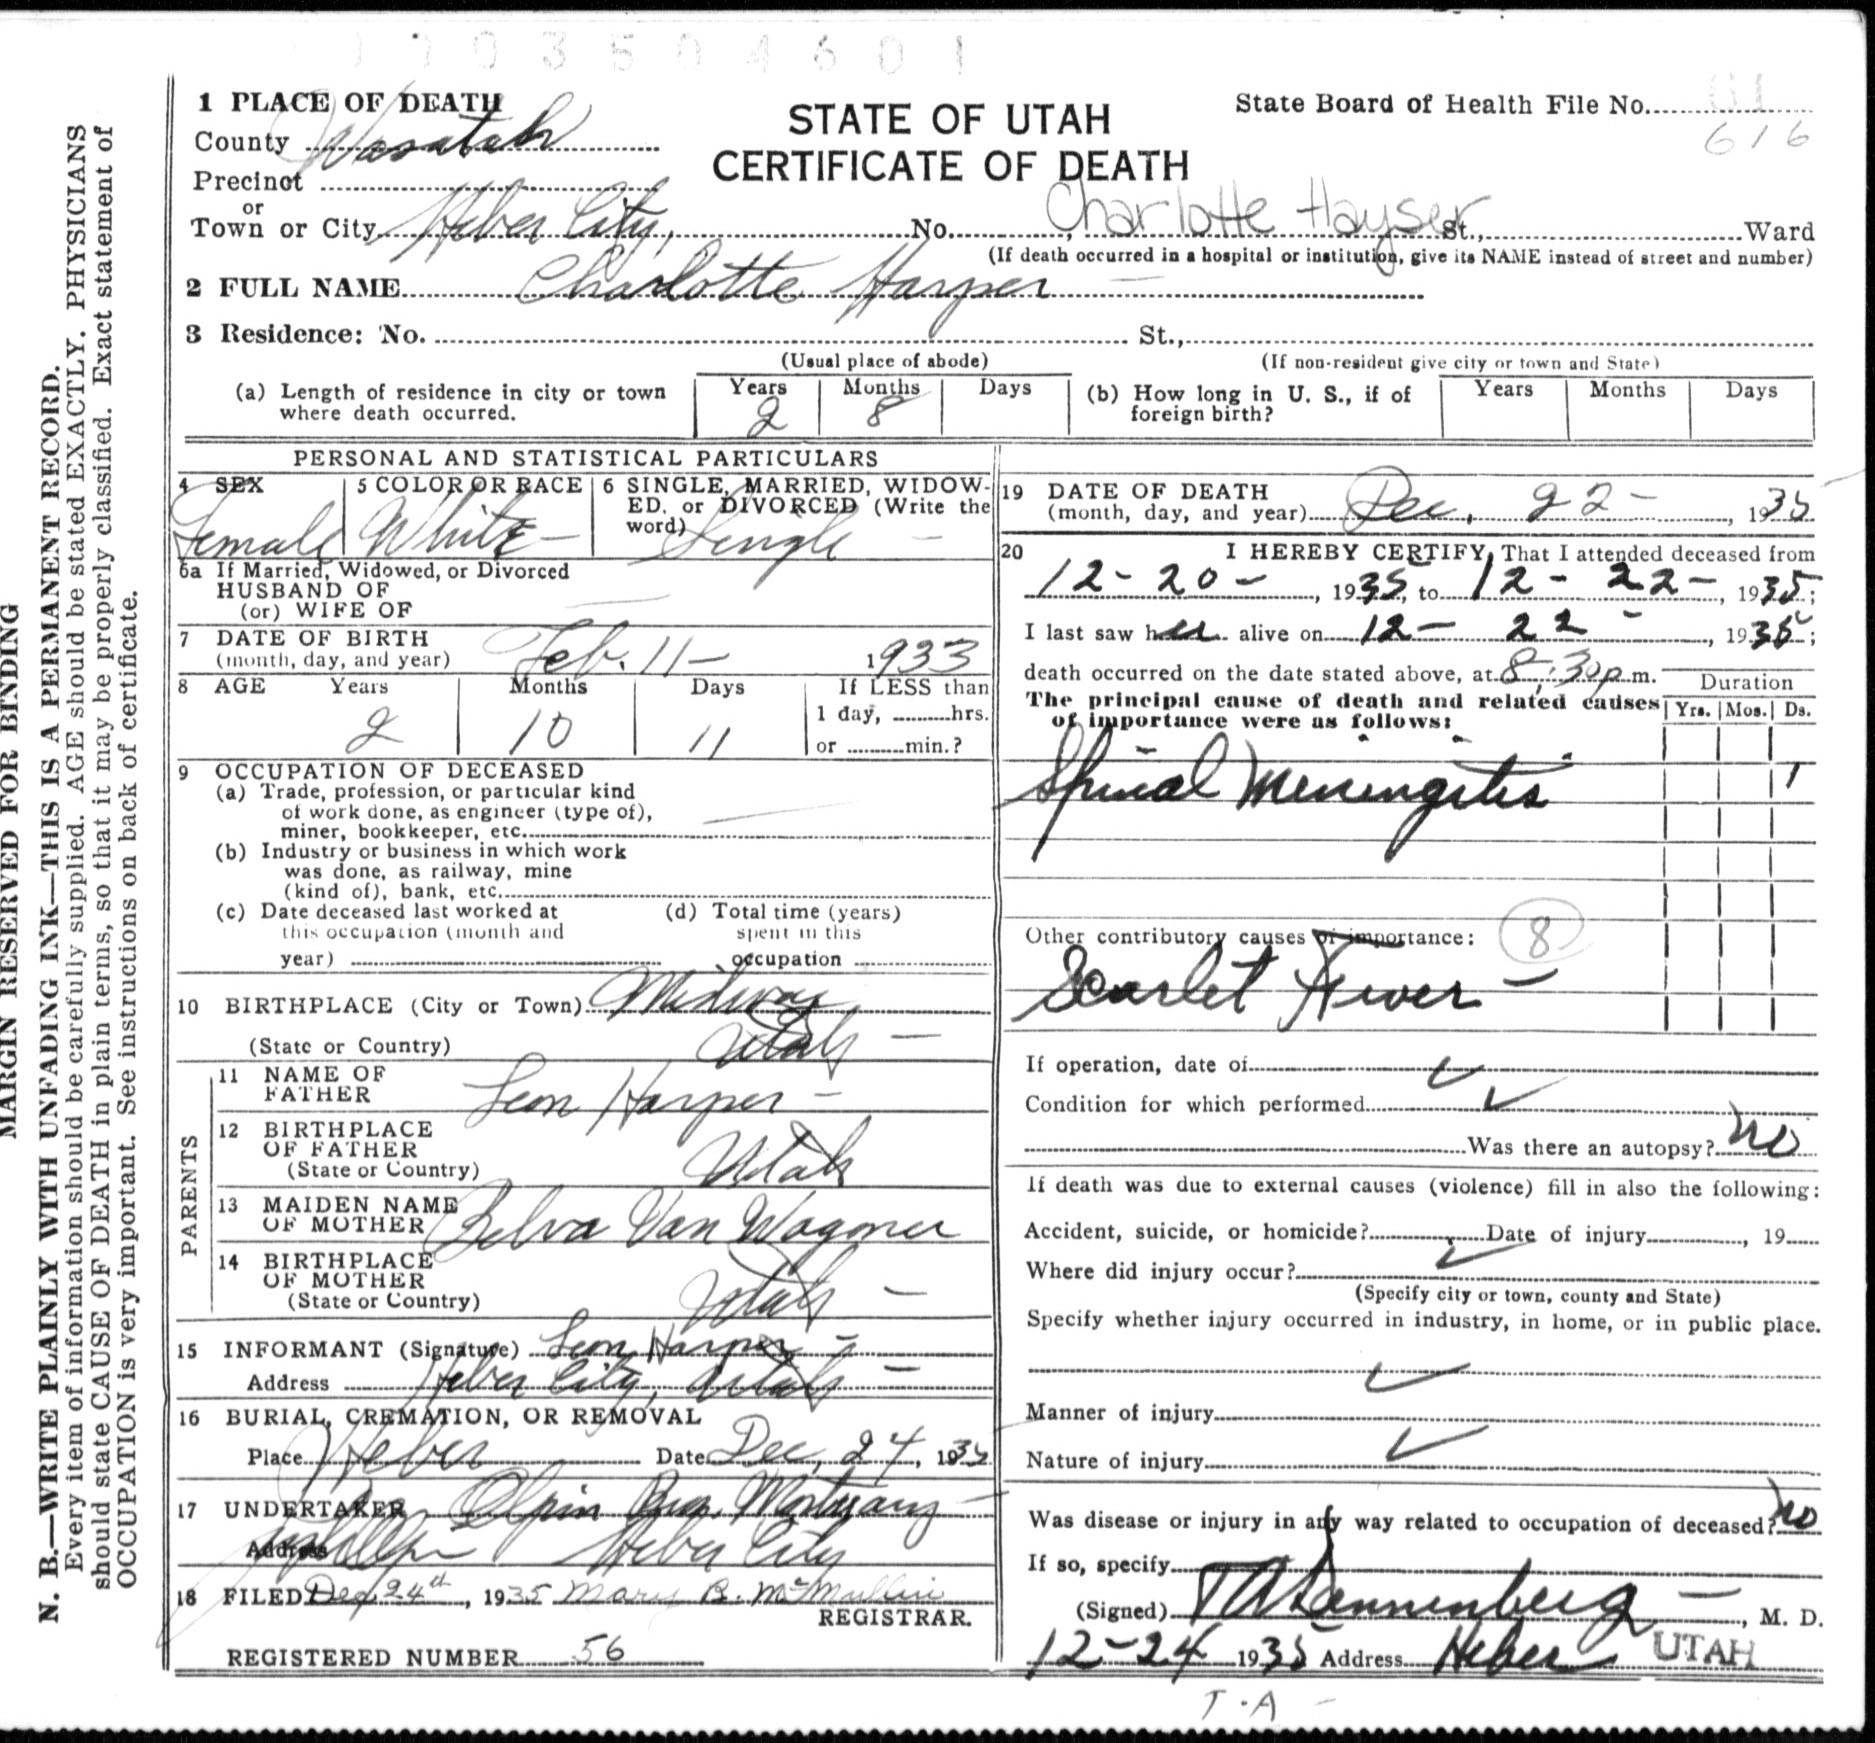 1 1 0 3 5 0 4 6 0 1
1 PLACE OF DEATH
County Wasatch
Precinct
or
Town or City Heber City, No. Charlotte Hayser St., Ward
(If death occurred in a hospital or institution, give its NAME instead of street and number)
STATE OF UTAH
CERTIFICATE OF DEATH
State Board of Health File No. 61
616
2 FULL NAME Charlotte Harper
3 Residence: No. St.,
(Usual place of abode) (If non-resident give city or town and State)
(a) Length of residence in city or town where death occurred. Years 2 Months 8 Days
(b) How long in U. S., if of foreign birth? Years Months Days
PERSONAL AND STATISTICAL PARTICULARS
4 SEX Female
5 COLOR OR RACE White
6 SINGLE, MARRIED, WIDOW-
ED, or DIVORCED (Write the
word) Single
6a If Married, Widowed, or Divorced
HUSBAND OF
(or) WIFE OF
7 DATE OF BIRTH
(month, day, and year) Feb. 11- 1933
8 AGE Years 2 Months 10 Days 11 If LESS than
1 day, hrs.
or min.?
9 OCCUPATION OF DECEASED
(a) Trade, profession, or particular kind
of work done, as engineer (type of),
miner, bookkeeper, etc.
(b) Industry or business in which work
was done, as railway, mine
(kind of), bank, etc.
(c) Date deceased last worked at
this occupation (month and
year)
(d) Total time (years)
spent in this
occupation
10 BIRTHPLACE (City or Town) Midway
(State or Country) Utah -
PARENTS
11 NAME OF
FATHER Leon Harper -
12 BIRTHPLACE
OF FATHER
(State or Country) Utah
13 MAIDEN NAME
OF MOTHER Belva Van Wagoner
14 BIRTHPLACE
OF MOTHER
(State or Country) Utah -
15 INFORMANT (Signature) Leon Harper -
Address Heber City, Utah -
16 BURIAL, CREMATION, OR REMOVAL
Place Heber Date Dec. 24, 1935
17 UNDERTAKER Olpin Bros. Mortuary
Address Heber City
18 FILED Dec. 24th, 1935 Mary B. McMullin
REGISTRAR.
REGISTERED NUMBER 56
19 DATE OF DEATH
(month, day, and year) Dec. 22-, 1935
20 I HEREBY CERTIFY, That I attended deceased from
12-20-, 1935, to 12-22-, 1935;
I last saw her alive on 12- 22-, 1935;
death occurred on the date stated above, at 8:30 p m.
The principal cause of death and related causes
of importance were as follows:
Duration
Yrs. Mos. Ds.
Spinal Meningitis 1
Other contributory causes of importance: 8
Scarlet Fever -
If operation, date of
Condition for which performed
Was there an autopsy? no
If death was due to external causes (violence) fill in also the following:
Accident, suicide, or homicide? Date of injury , 19
Where did injury occur?
(Specify city or town, county and State)
Specify whether injury occurred in industry, in home, or in public place.
Manner of injury
Nature of injury
Was disease or injury in any way related to occupation of deceased? no
If so, specify
(Signed) T A Dannenberg -, M. D.
12-24 1935 Address Heber UTAH
T. A -
MARGIN RESERVED FOR BINDING
N. B.—WRITE PLAINLY WITH UNFADING INK—THIS IS A PERMANENT RECORD.
Every item of information should be carefully supplied. AGE should be stated EXACTLY. PHYSICIANS
should state CAUSE OF DEATH in plain terms, so that it may be properly classified. Exact statement of
OCCUPATION is very important. See instructions on back of certificate.